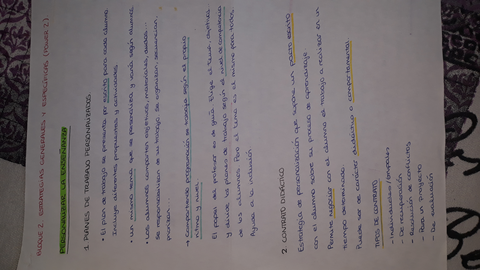 BLOQUE 2. ESTRATEGIAS GENERALES Y ESPECÍFICAS (POWER 2.)
PERSONALIZAR LA ENSEÑANZA
1. PLANES DE TRABAJO PERSONALIZADOS
• El plan de trabajo se presenta por escrito para cada alumno.
Incluye diferentes propuestas y actividades.
• Un mismo temío que se personaliza y varía según alumno.
• Los alumnos comparten objetivos, materiales, dudas...
Se responsabilizan de su trabajo. Se organizan, secuencian,
priorizan...
→ Compartiendo programación se trabaja según el propio
ritmo y nivel.
El papel del profesor es de guía. Elige el tema, objetivos
y divide el planing de trabajo según el nivel de competencia
de los alumnos. Pero el tema es el mismo para todos.
Ayuda a la evaluación
2. CONTRATO DIDÁCTICO
Estrategia de personalización que supone un pacto escrito
con el alumno sobre su proceso de aprendizaje.
Permite negociar con el alumno el trabajo a realizar en un
tiempo determinado.
Puede ser de carácter didáctico o comportamental.
TIPOS DE CONTRATO
- Individuales / grupales
- De recuperación
- Resolución de conflictos
- Para un proyecto
- De evaluación